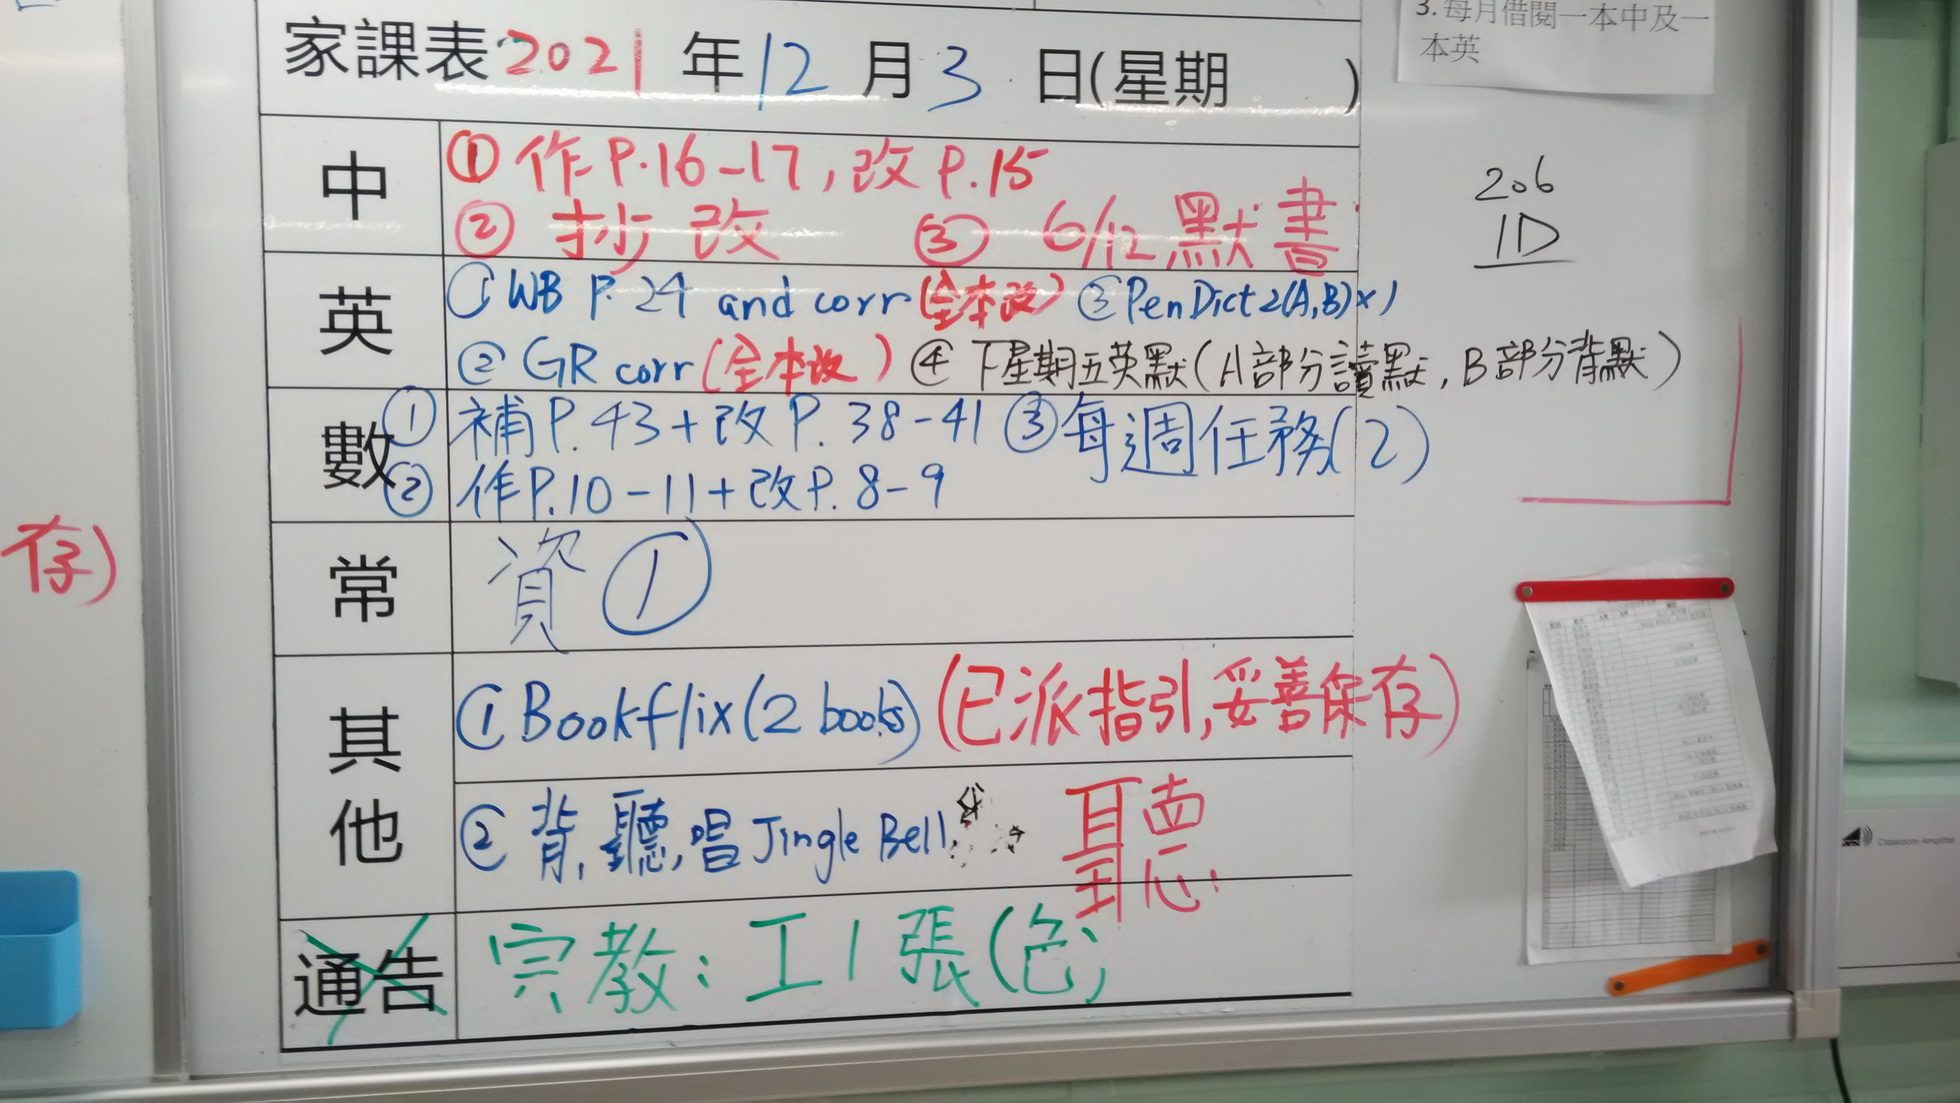 3. 每月借閱一本中及一
本英
家課表 2021 年 12 月 3 日(星期 )
中
① 作P.16-17, 改P.15
② 抄改 ③ 6/12 默書
206
1D
英
① WB P.24 and corr (全本改) ③ Pen Dict 2(A,B)×1
② GR corr (全本改) ④ 下星期五英默(A部分讀默, B部分背默)
數
① 補P.43+改P.38-41 ③ 每週任務(2)
② 作P.10-11+改P.8-9
常
資①
存)
其他
① Bookflix (2 books) (已派指引,妥善保存)
② 背, 聽, 唱 Jingle Bell
聽
通告
宗教: 工1張(色)
Classroom Amplifier